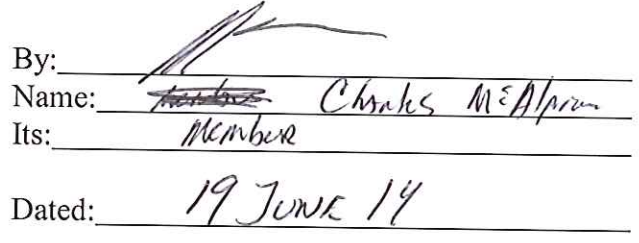 By:
Name: Charles McAlpin
Its: Member
Dated: 19 JUNE 14